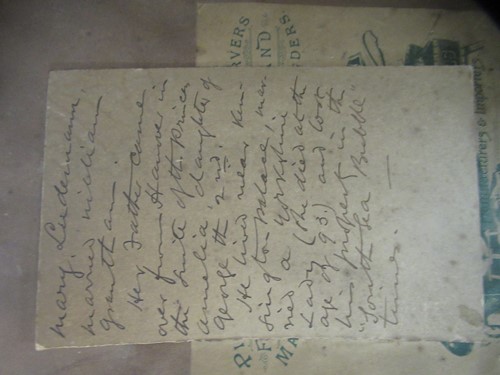 Mary. Luedemann.
married William
Grantham.
Her father came
over from Hanover in
the suite of the Princess
Amelia daughter of
George the 2nd.
He lived near Ken-
sington palace, mar-
ried a Yorkshire
Lady (she died at the
age of 93.) and lost
his property in the
"South Sea Bubble"
times.
RVERS
AND
DERS.